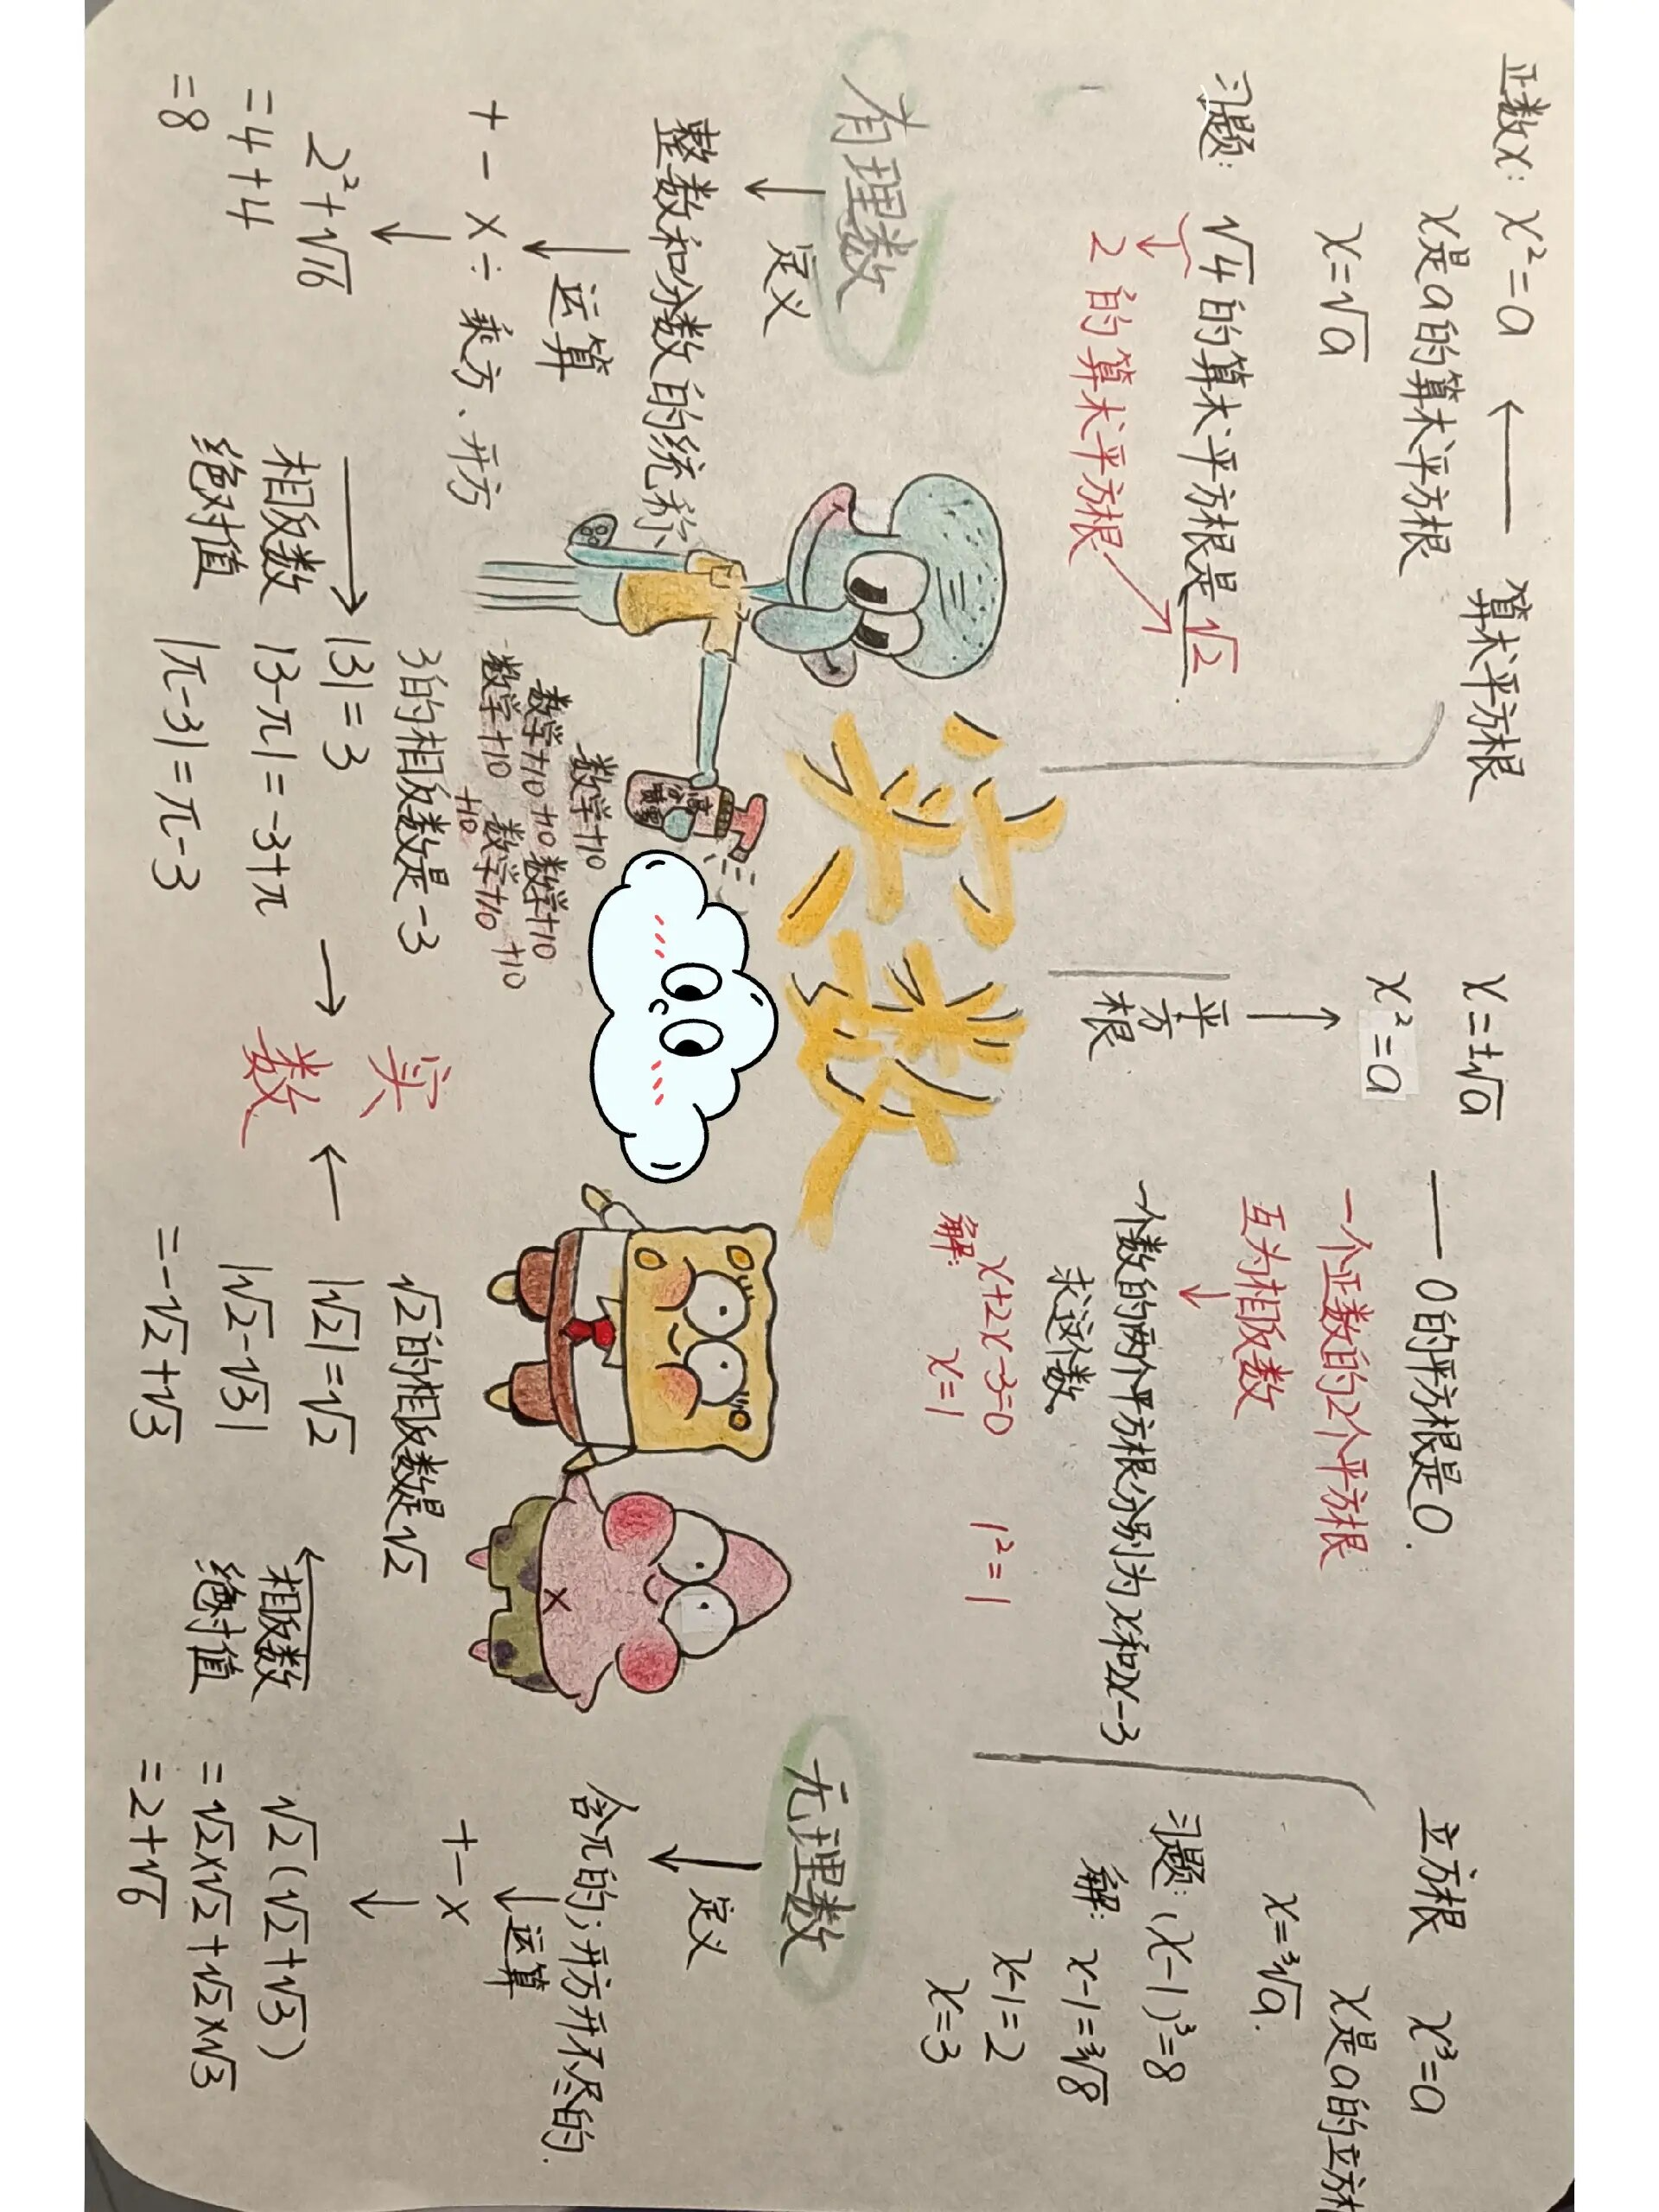 正数x: x²=a
x是a的算术平方根
x=√a
算术平方根
习题: √4的算术平方根是√2.
2的算术平方根
x=±√a
x²=a
平方根
0的平方根是0.
一个正数的2个平方根
互为相反数
一个数的两个平方根分别为x和2x-3
求这个数。
解: x+2x-3=0
x=1
1²=1
立方根 x³=a
x是a的立方
x=³√a.
习题: (x-1)³=8
解: x-1=³√8
x-1=2
x=3
实数
有理数
定义
整数和分数的统称
运算
+ - × ÷ 乘方、开方
2²+√16
=4+4
=8
相反数
绝对值
3的相反数是-3
|3|=3
|3-π|=-3+π
|π-3|=π-3
数学+10
数学+10 +10 数学+10
数学+10 数学+10 +10
+10
实
数
√2的相反数是√2
|√2|=√2
|√2-√3|
=-√2+√3
相反数
绝对值
无理数
定义
含π的;开方开不尽的.
运算
+ - ×
√2(√2+√3)
=√2×√2+√2×√3
=2+√6